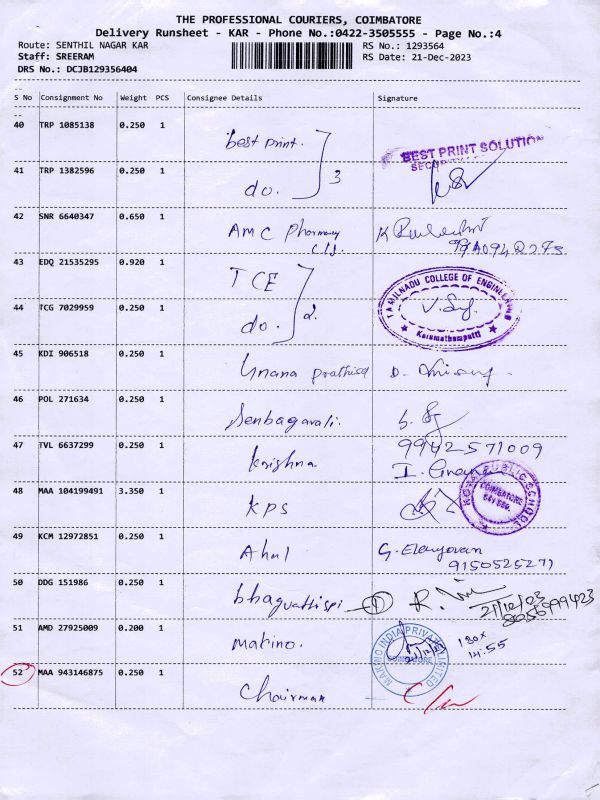 THE PROFESSIONAL COURIERS, COIMBATORE
Delivery Runsheet - KAR - Phone No.:0422-3505555 - Page No.:4
Route: SENTHIL NAGAR KAR
RS No.: 1293564
Staff: SREERAM
RS Date: 21-Dec-2023
DRS No.: DCJB129356404
S No Consignment No Weight PCS Consignee Details Signature
40 TRP 1085138 0.250 1 best print. BEST PRINT SOLUTION
41 TRP 1382596 0.250 1 do. 3
42 SNR 6640347 0.650 1 AMC Pharmacy
43 EDQ 21535295 0.920 1 TCE TAMILNADU COLLEGE OF ENGINEERING
44 TCG 7029959 0.250 1 do. 2. Karumathampatti
45 KDI 906518 0.250 1
46 POL 271634 0.250 1 Senbagavali.
9942571009
47 TVL 6637299 0.250 1 Krishna
48 MAA 104199491 3.350 1 KPS PUBLIC SCHOOL COIMBATORE
49 KCM 12972851 0.250 1 G. Elayovan
9150525271
50 DDG 151986 0.250 1 21/12/23
51 AMD 27925009 0.200 1 makino. MAKINO INDIA PRIVATE LIMITED COIMBATORE
14:55
52 MAA 943146875 0.250 1 Chairman